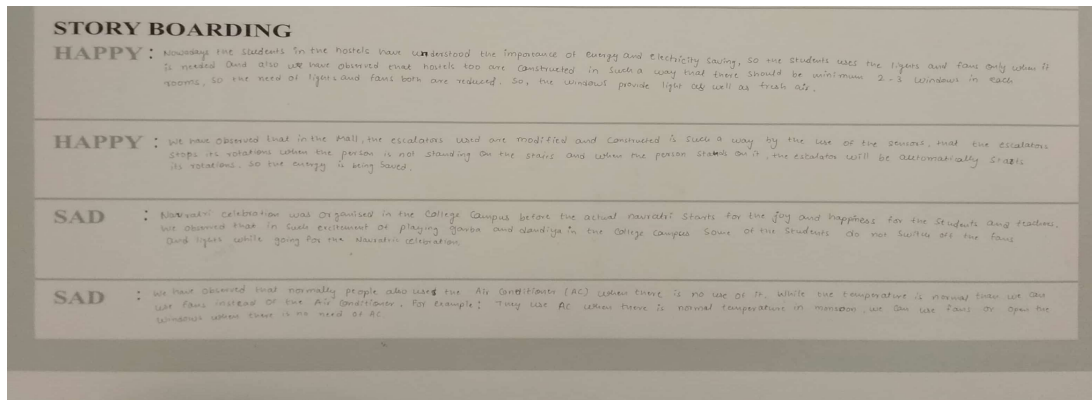 STORY BOARDING
HAPPY : Nowadays the students in the hostels have understood the importance of energy and electricity saving, so the students uses the lights and fans only when it
is needed and also we have observed that hostels too are constructed in such a way that there should be minimum 2-3 windows in each
rooms, so the need of lights and fans both are reduced. So, the windows provide light as well as fresh air.
HAPPY : We have observed that in the mall, the escalators used are modified and constructed is such a way by the use of the sensors, that the escalators
stops its rotations when the person is not standing on the stairs and when the person stands on it, the escalator will be automatically starts
its rotations. So the energy is being saved.
SAD : Navratri celebration was organised in the College Campus before the actual navratri starts for the joy and happiness for the students and teachers.
We observed that in such excitement of playing garba and dandiya in the college campus some of the students do not switch off the fans
and lights while going for the Navratri celebration
SAD : We have observed that normally people also used the Air Conditioner (AC) when there is no use of it. While the temperature is normal then we can
use fans instead of the Air Conditioner. For example: They use AC when there is normal temperature in monsoon, we can use fans or open the
windows when there is no need of AC.